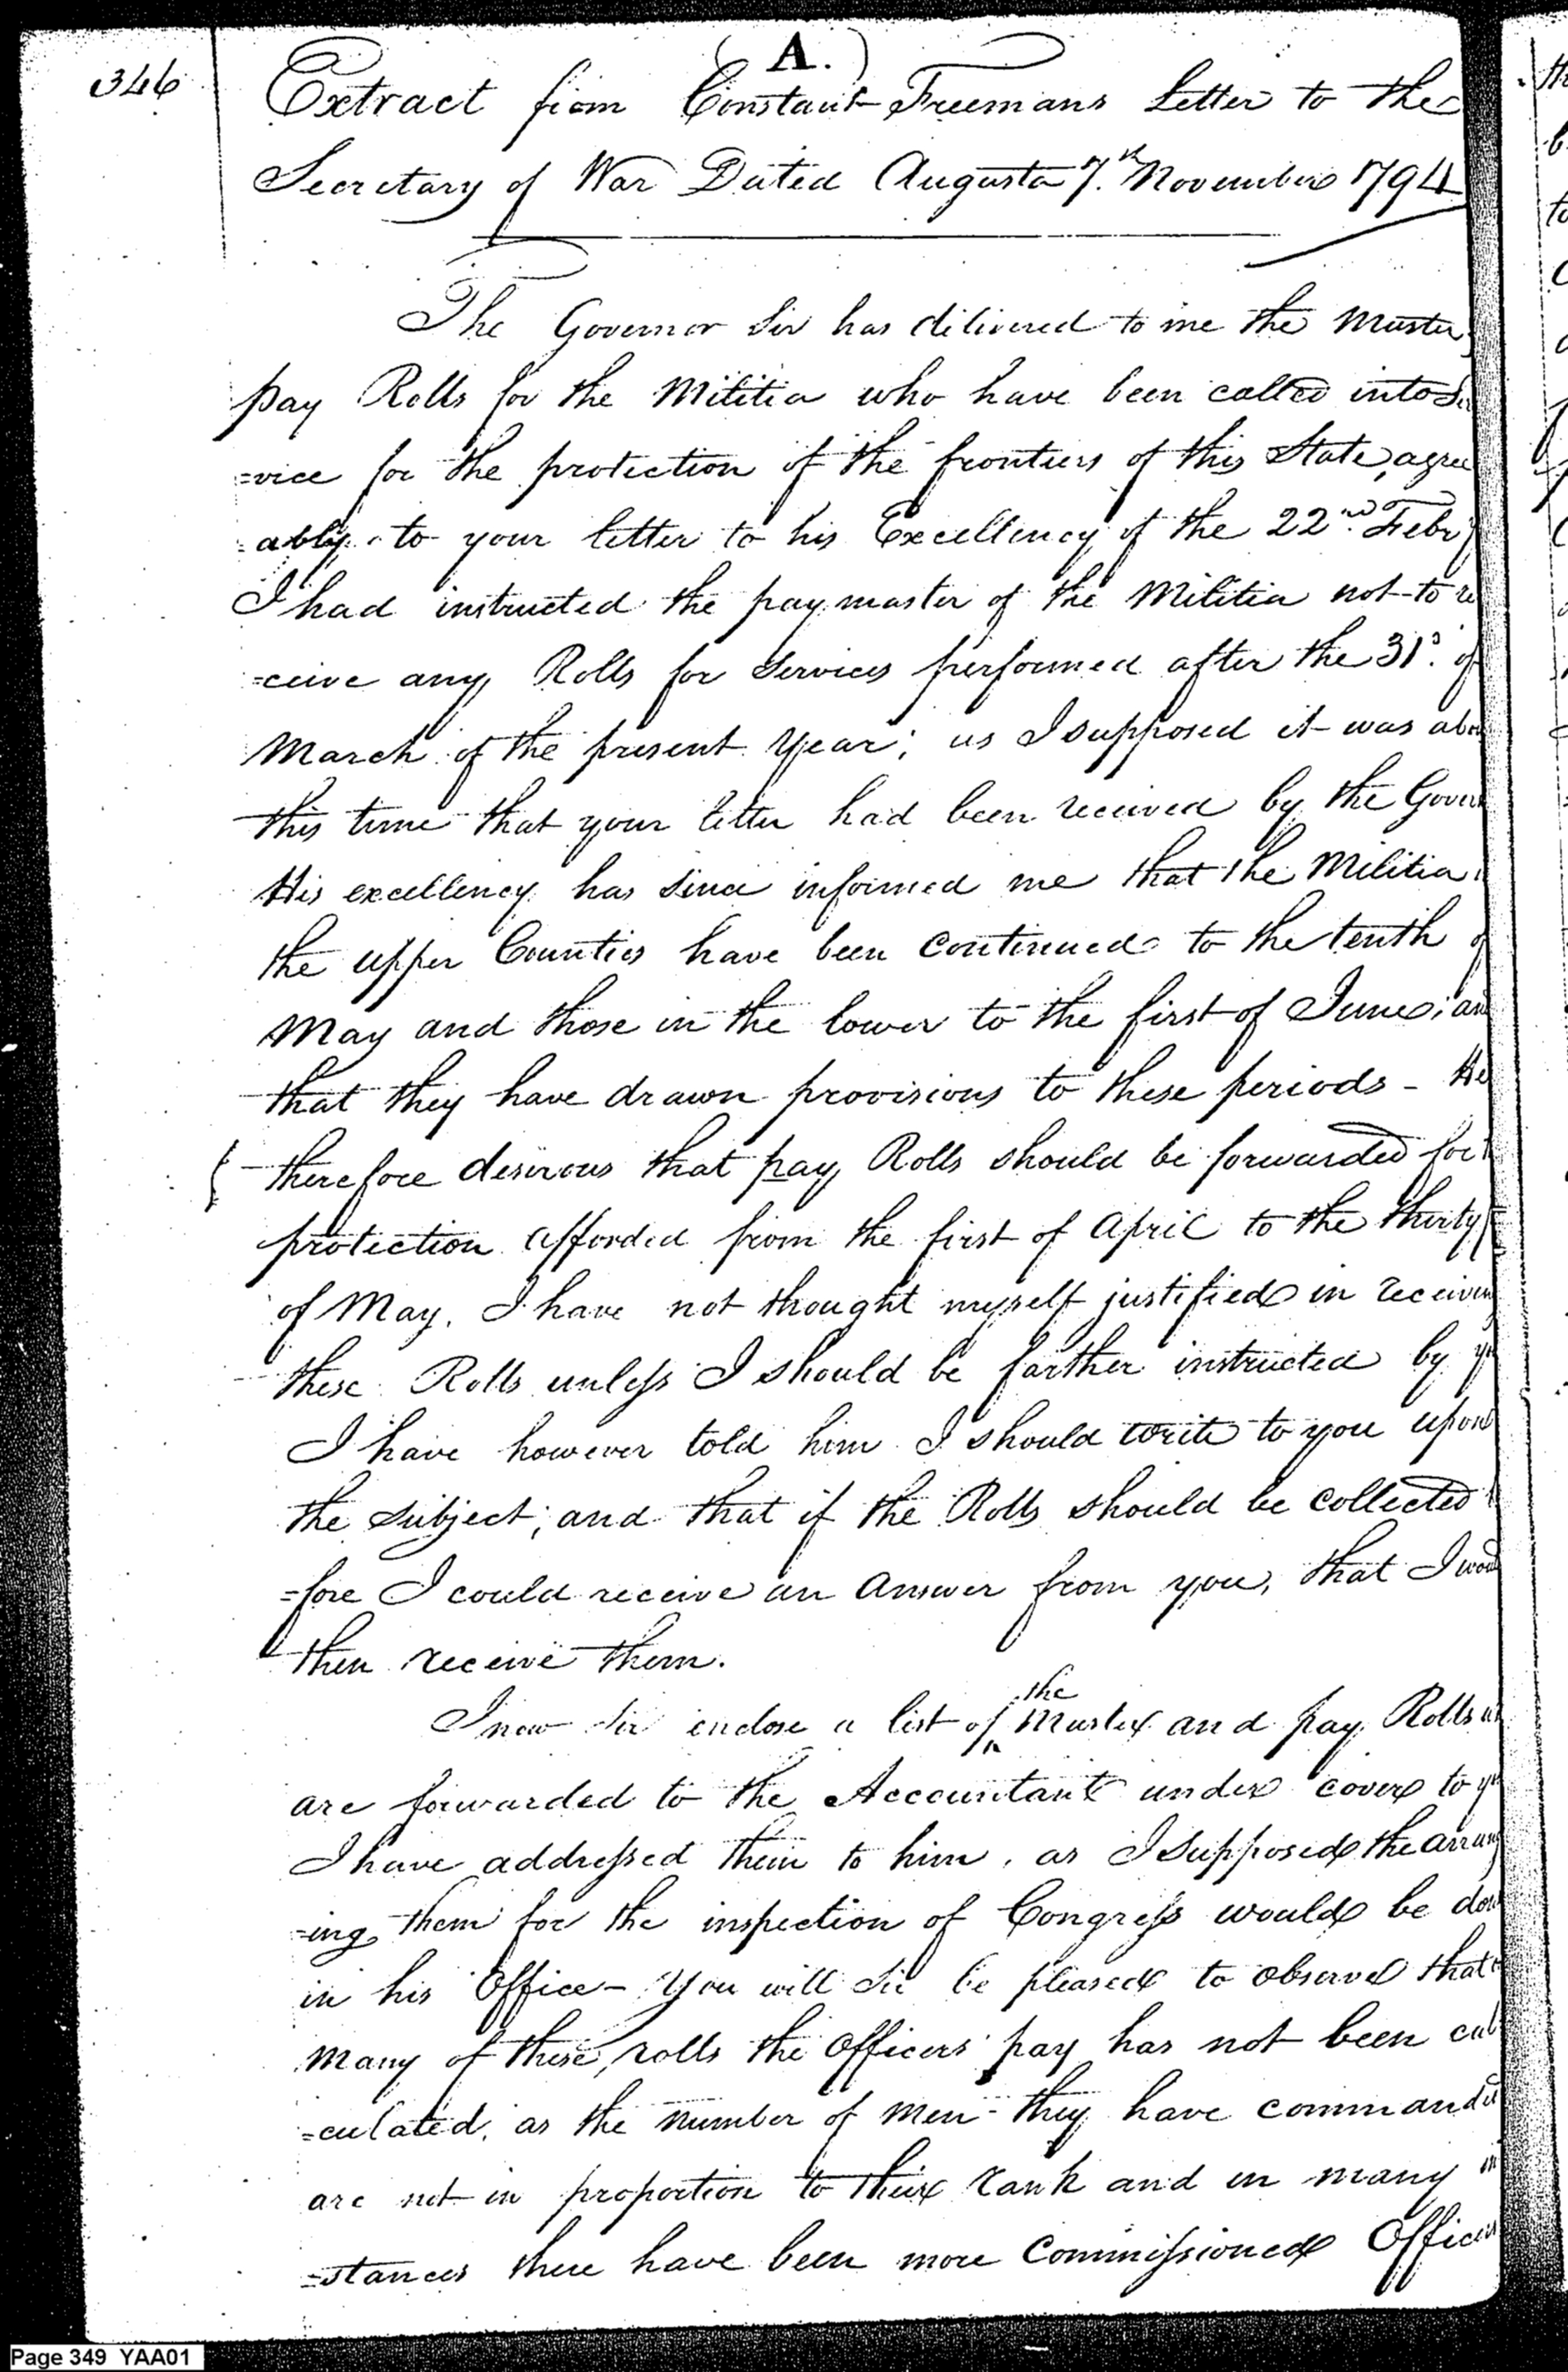 346
(A.)
Extract from Constant Freemans Letter to the
Secretary of War Dated Augusta 7.th November 1794
The Governor Sir has delivered to me the Muster
pay Rolls for the Militia who have been called into Se
=vice for the protection of the frontiers of this State, agree
=ably to your letter to his Excellency of the 22.nd Feby
I had instructed the paymaster of the Militia not to re
=ceive any Rolls for Services performed after the 31.s of
March of the present Year; as I supposed it was abo
this time that your letter had been received by the Gover
His excellency has since informed me that the Militia
the upper Counties have been continued to the tenth of
May and those in the lower to the first of June; and
that they have drawn provisions to these periods - He
therefore desirous that pay Rolls should be forwarded for
protection afforded from the first of April to the thirty
of May. I have not thought myself justified in receivin
these Rolls unless I should be farther instructed by yo
I have however told him I should write to you upon
the subject; and that if the Rolls should be collected
=fore I could receive an Answer from you, that I wou
then receive them.
I now Sir enclose a list of the Muster and pay Rolls
are forwarded to the Accountant under cover to yo
I have addressed them to him, as I supposed the arrang
=ing them for the inspection of Congress would be don
in his Office - You will Sir be pleased to observe that
many of these rolls the Officers pay has not been cal
=culated, as the number of men they have commanded
are not in proportion to their rank and in many in
=stances there have been more Commissioned Officers
Page 349 YAA01